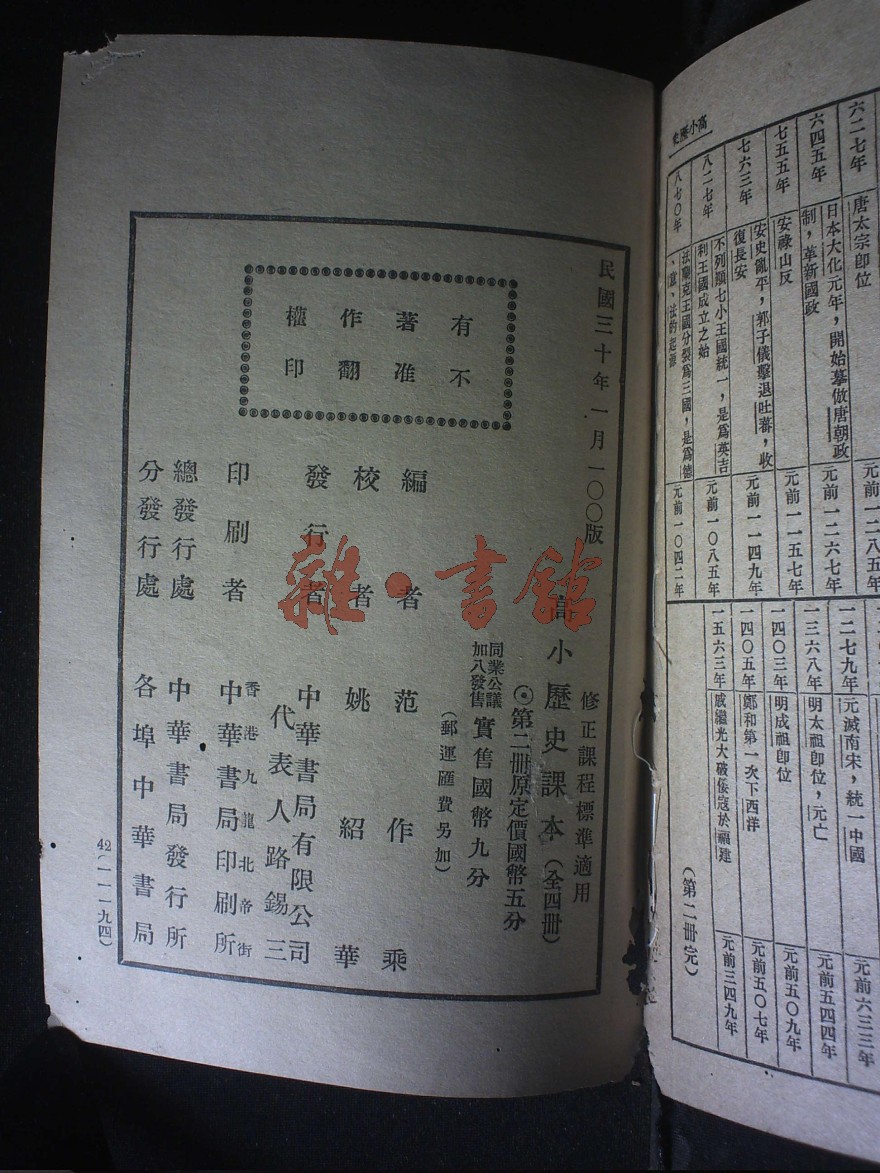 高小歷史
六二七年
唐太宗卽位
元前一二八五年
六四五年
日本大化元年，開始摹倣唐朝政
制，革新國政
元前一二六七年
七五五年
安祿山反
元前一一五七年
七六三年
安史亂平，郭子儀擊退吐蕃，收
復長安
元前一一四九年
八二七年
不列顚七小王國統一，是爲英吉
利王國成立之始
元前一〇八五年
八七〇年
法蘭克王國分裂爲三國，是爲德
、意、法的起源
元前一〇四二年
一二七九年
元滅南宋，統一中國
元前六三三年
一三六八年
明太祖卽位，元亡
元前五四四年
一四〇三年
明成祖卽位
元前五〇九年
一四〇五年
鄭和第一次下西洋
元前五〇七年
一五六三年
戚繼光大破倭寇於福建
元前三四九年
(第二冊完)
民國三十年一月一〇〇版
有著作權
不准翻印
修正課程標準適用
高小歷史課本(全四冊)
⊙第二冊原定價國幣五分
同業公議
加八發售
實售國幣九分
(郵運匯費另加)
編者 范作乘
校者 姚紹華
發行者 中華書局有限公司
代表人路錫三
印刷者 香港九龍北帝街
中華書局印刷所
總發行處 中華書局發行所
分發行處 各埠中華書局
42(一一一九四)
雜·書館